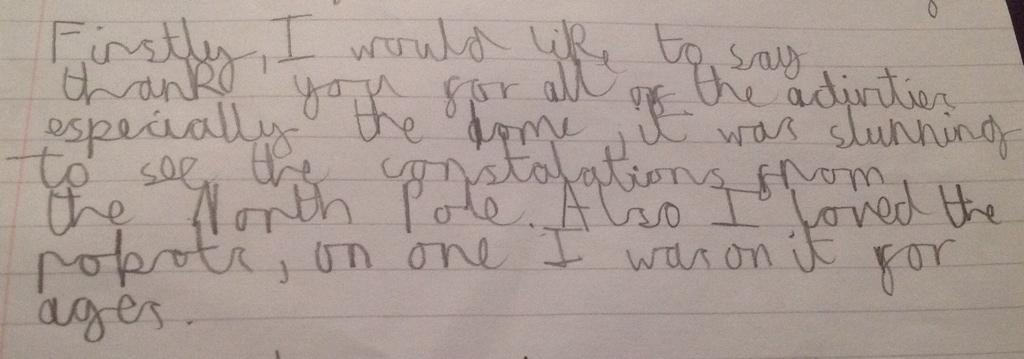 Firstly, I would like to say
thank you for all of the activities
especially the dome, it was stunning
to see the constalations from
the North Pole. Also I loved the
robots, on one I was on it for
ages.